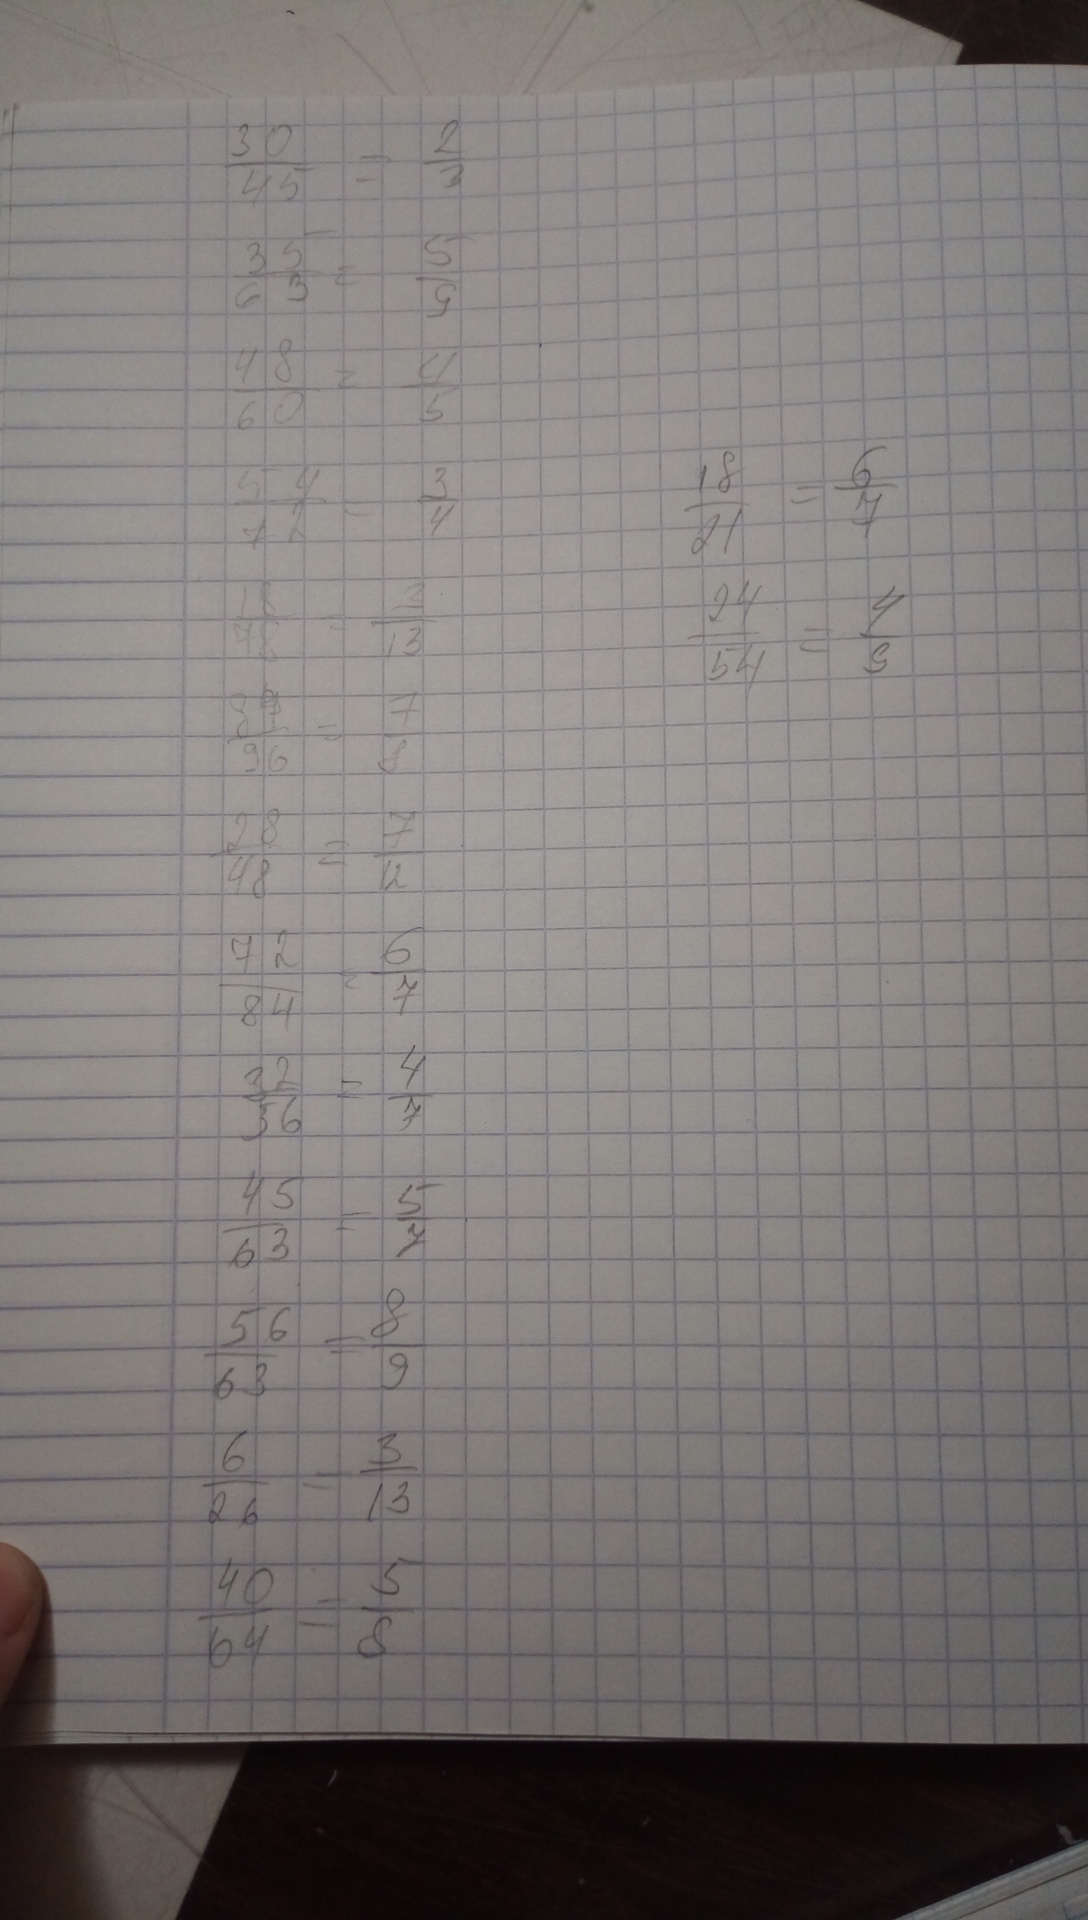 30/45 = 2/3
35/63 = 5/9
48/60 = 4/5
54/72 = 3/4
18/78 = 3/13
= 7/8
28/48 = 7/12
72/84 = 6/7
32/56 = 4/7
45/63 = 5/7
56/63 = 8/9
6/26 = 3/13
40/64 = 5/8
18/21 = 6/7
24/54 = 4/9